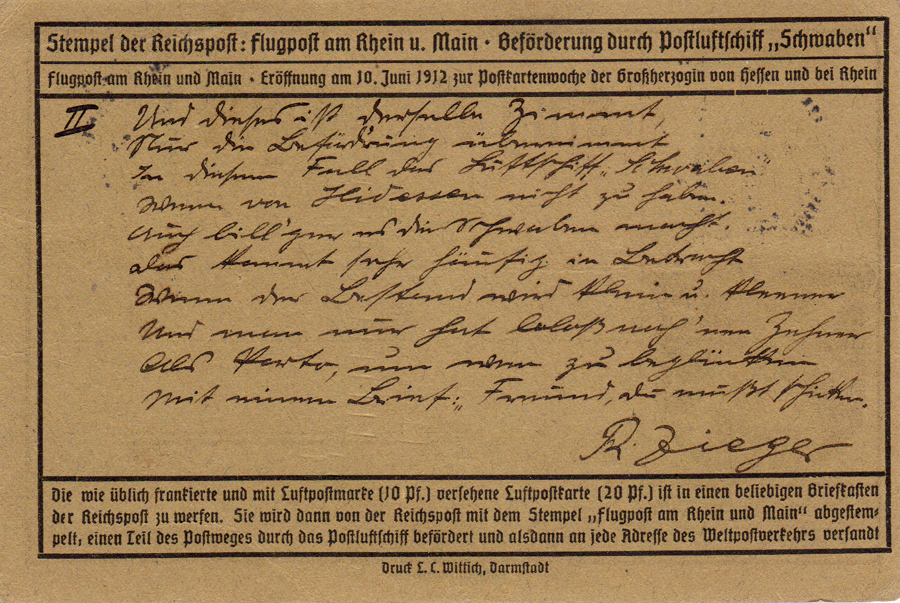 Stempel der Reichspost: Flugpost am Rhein u. Main · Beförderung durch Postluftschiff „Schwaben“
Flugpost am Rhein und Main · Eröffnung am 10. Juni 1912 zur Postkartenwoche der Großherzogin von Hessen und bei Rhein
II. Und dieses ist derselle Zimmt,
Nur die Beförd'rung übernimmt
In diesem Fall das Luftschiff „Schwaben“
Wenn von Hidessen nicht zu haben.
Auch bill'ger es die Schwaben macht.
Das kommt sehr häufig in Betracht
Wenn der Bestand wird klein u. kleener
Und man nur hat noch 'nen Zehner
Als Porto, um wen zu beglücken
Mit einem Brief: „Freund, du mußt schicken.
R. Zieger
Die wie üblich frankierte und mit Luftpostmarke (10 Pf.) versehene Luftpostkarte (20 Pf.) ist in einen beliebigen Briefkasten
der Reichspost zu werfen. Sie wird dann von der Reichspost mit dem Stempel „Flugpost am Rhein und Main“ abgestem-
pelt, einen Teil des Postweges durch das Postluftschiff befördert und alsdann an jede Adresse des Weltpostverkehrs versandt
Druck L. C. Wittich, Darmstadt